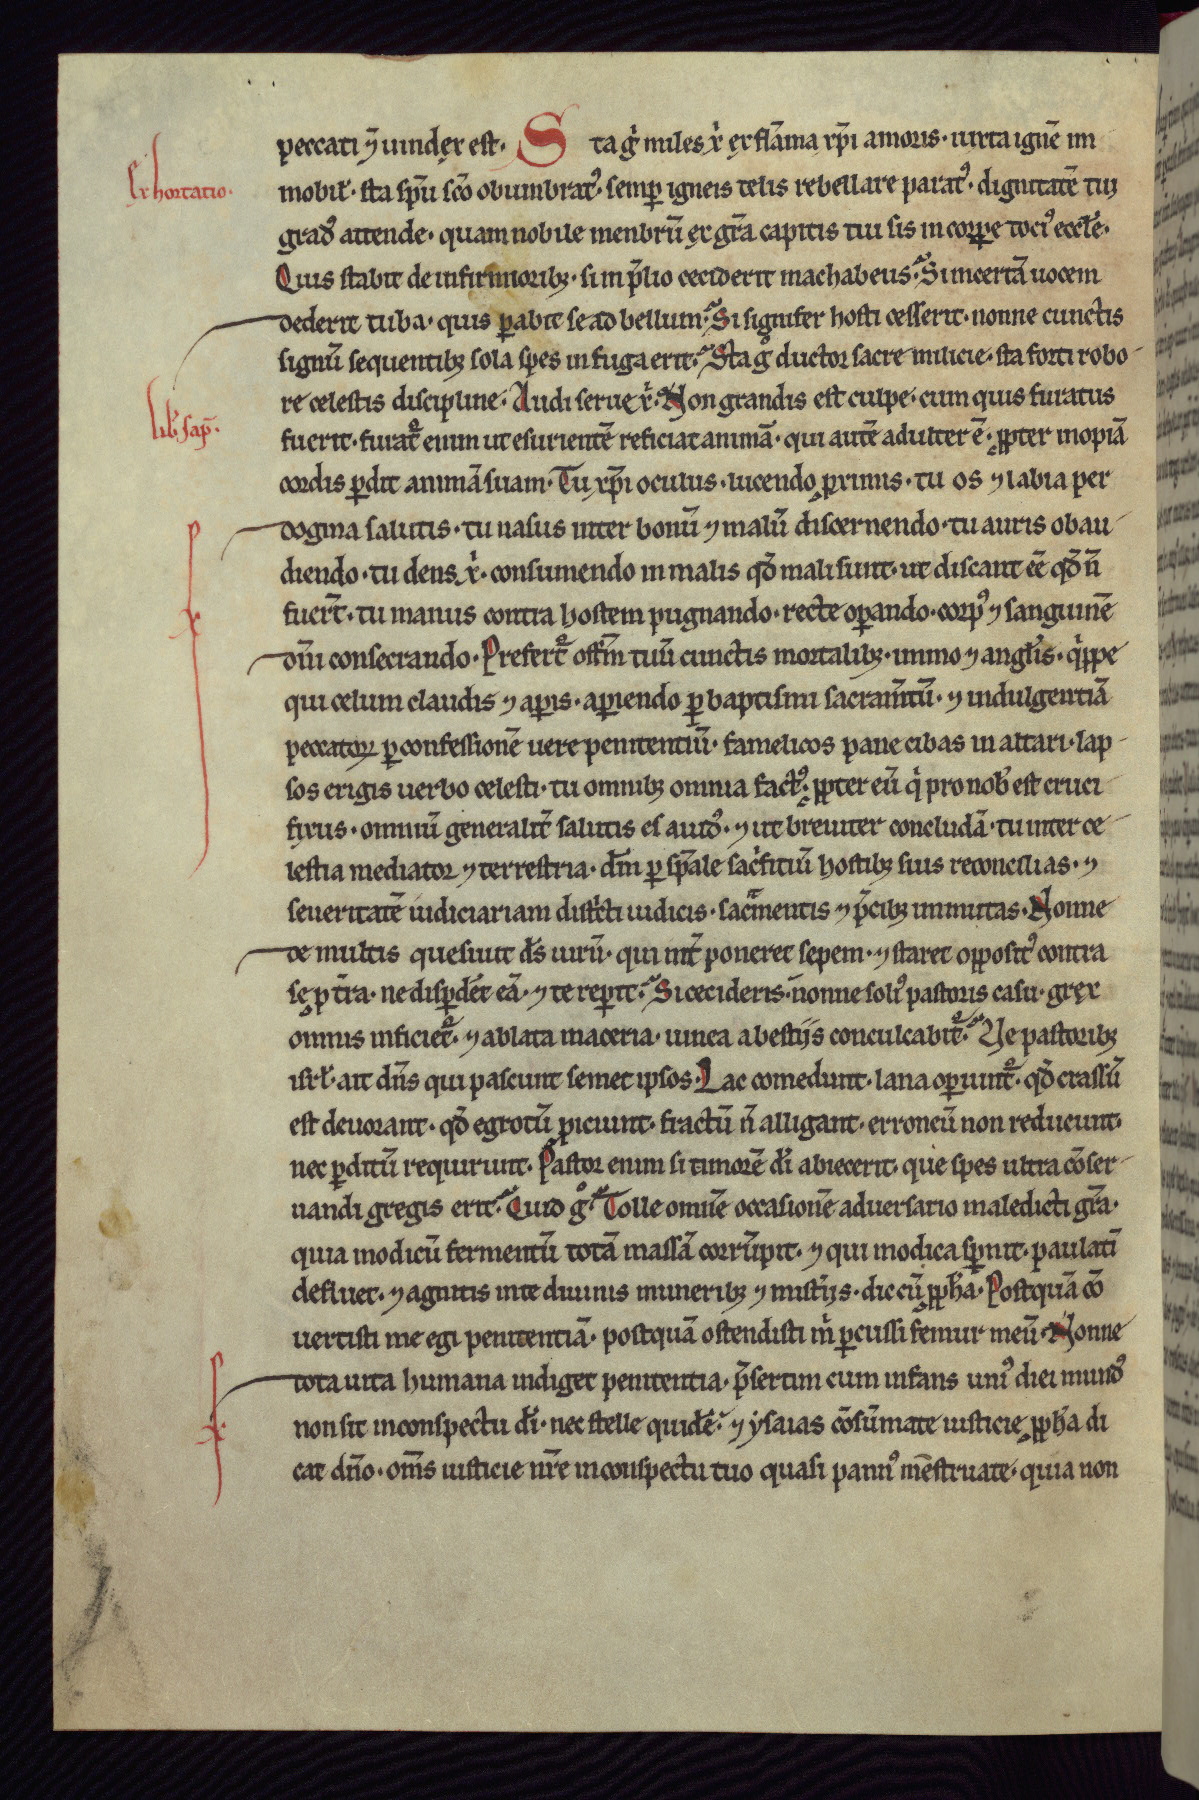 peccati ⁊ uindex est. Sta g̊ miles x̄ ex flāma xp̄i amoris. iuxta ignē im
Exhortatio.
mobil̛. sta sp̄u sc̄o obumbratꝰ. semꝑ igneis telis rebellare paratꝰ. dignitatē tuį
gradꝰ attende. quam nobile menbrū ex gr̄a capitis tui sis in corꝑe tociꝰ eccl̛e.
Quis stabit de infirmioribȝ. si in p̄lio ceciderit machabeus. Si incertā uocem
dederit tuba. quis ꝑabit se ad bellum. Si signifer hosti cesserit. nonne cunctis
signū sequentibȝ sola spes in fuga erit. Sta g̊ ductor sacre milicie. sta forti robo
re celestis discipline. Audi serue x̄. Non grandis est culpe. cum quis furatus
lib̛. sap̄.
fuerit. furat᷑ enim ut esurientē reficiat animā. qui autē adulter ē. ꝓpter inopiā
cordis ꝑdit animā suam. Tu xp̄i oculus. lucendo ꝓximis. tu os ⁊ labia per
dogma salutis. tu nasus inter bonū ⁊ malū discernendo. tu auris obau
diendo. tu dens x̄. consumendo in malis qd̄ mali sunt. ut discant eē qd̄ n̄
fuer̄t. tu manus contra hostem pugnando. recte oꝑando. corpꝰ ⁊ sanguinē
dn̄i consecrando. Prefert᷑ offm̄ tuū cunctis mortalibȝ. immo ⁊ angl̛is. qͥppe
qui celum claudis ⁊ aꝑis. aꝑiendo ꝑ baptismi sacram̄tū. ⁊ indulgentiā
peccatoꝝ ꝑ confessionē uere penitentiū. famelicos pane cibas in altari. lap
sos erigis uerbo celesti. tu omnibȝ omnia factꝰ. ꝓpter eū qͥ pro nob̛ est cruci
fixus. omniū generalit̄ salutis es auctꝰ. ⁊ ut breuiter concludā. tu inter ce
lestia mediator ⁊ terrestria. dm̄ ꝑ sp̄ale sacͥficiū hostibȝ suis reconcilias. ⁊
seueritatē iudiciariam distͥcti iudicis. sacͣmentis ⁊ p̄cibȝ immutas. Nonne
de multis quesiuit ds̄ uirū. qui int̄ poneret sepem. ⁊ staret oppositꝰ contra
se ꝓ t̄ra. ne disꝑdet̄ eā. ⁊ te reꝑit. Si cecideris. nonne soliꝰ pastoris casu. grex
omnis inficiet᷑. ⁊ ablata maceria. uinea a bestijs conculcabit᷑. Ve pastoribȝ
isrl̛. ait dn̄s qui pascunt semet ipsos. Lac comedunt. lana oꝑiunt᷑. qd̄ crassū
est deuorant. qd̄ egrotū ꝓiciunt. fractū n̄ alligant. erroneū non reducunt.
nec ꝑditū requirunt. Pastor enim si timorē di̅ abiecerit. que spes ultra cōser
uandi gregis erit. Quid g̊. Tolle omnē occasionē aduersario maledicti gr̄a.
quia modicū fermentū totā massā corrūpit. ⁊ qui modica sꝑnit. paulatī
defluet. ⁊ agnitis in te diuinis muneribȝ ⁊ mist̄ijs. dic cū ꝓph̄a. Postquā cō
uertisti me egi penitentiā. postquā ostendisti m̄ ꝑcussi femur meū. Nonne
tota uita humana indiget penitentia. p̄sertim cum infans uniꝰ diei mundꝰ
non sit in conspectu di̅. nec stelle quidē. ⁊ ysaias cōsūmate iusticie ꝓph̄a di
cat dn̄o. om̄s iusticie nr̄e in conspectu tuo quasi pannꝰ mēstruate. quia non